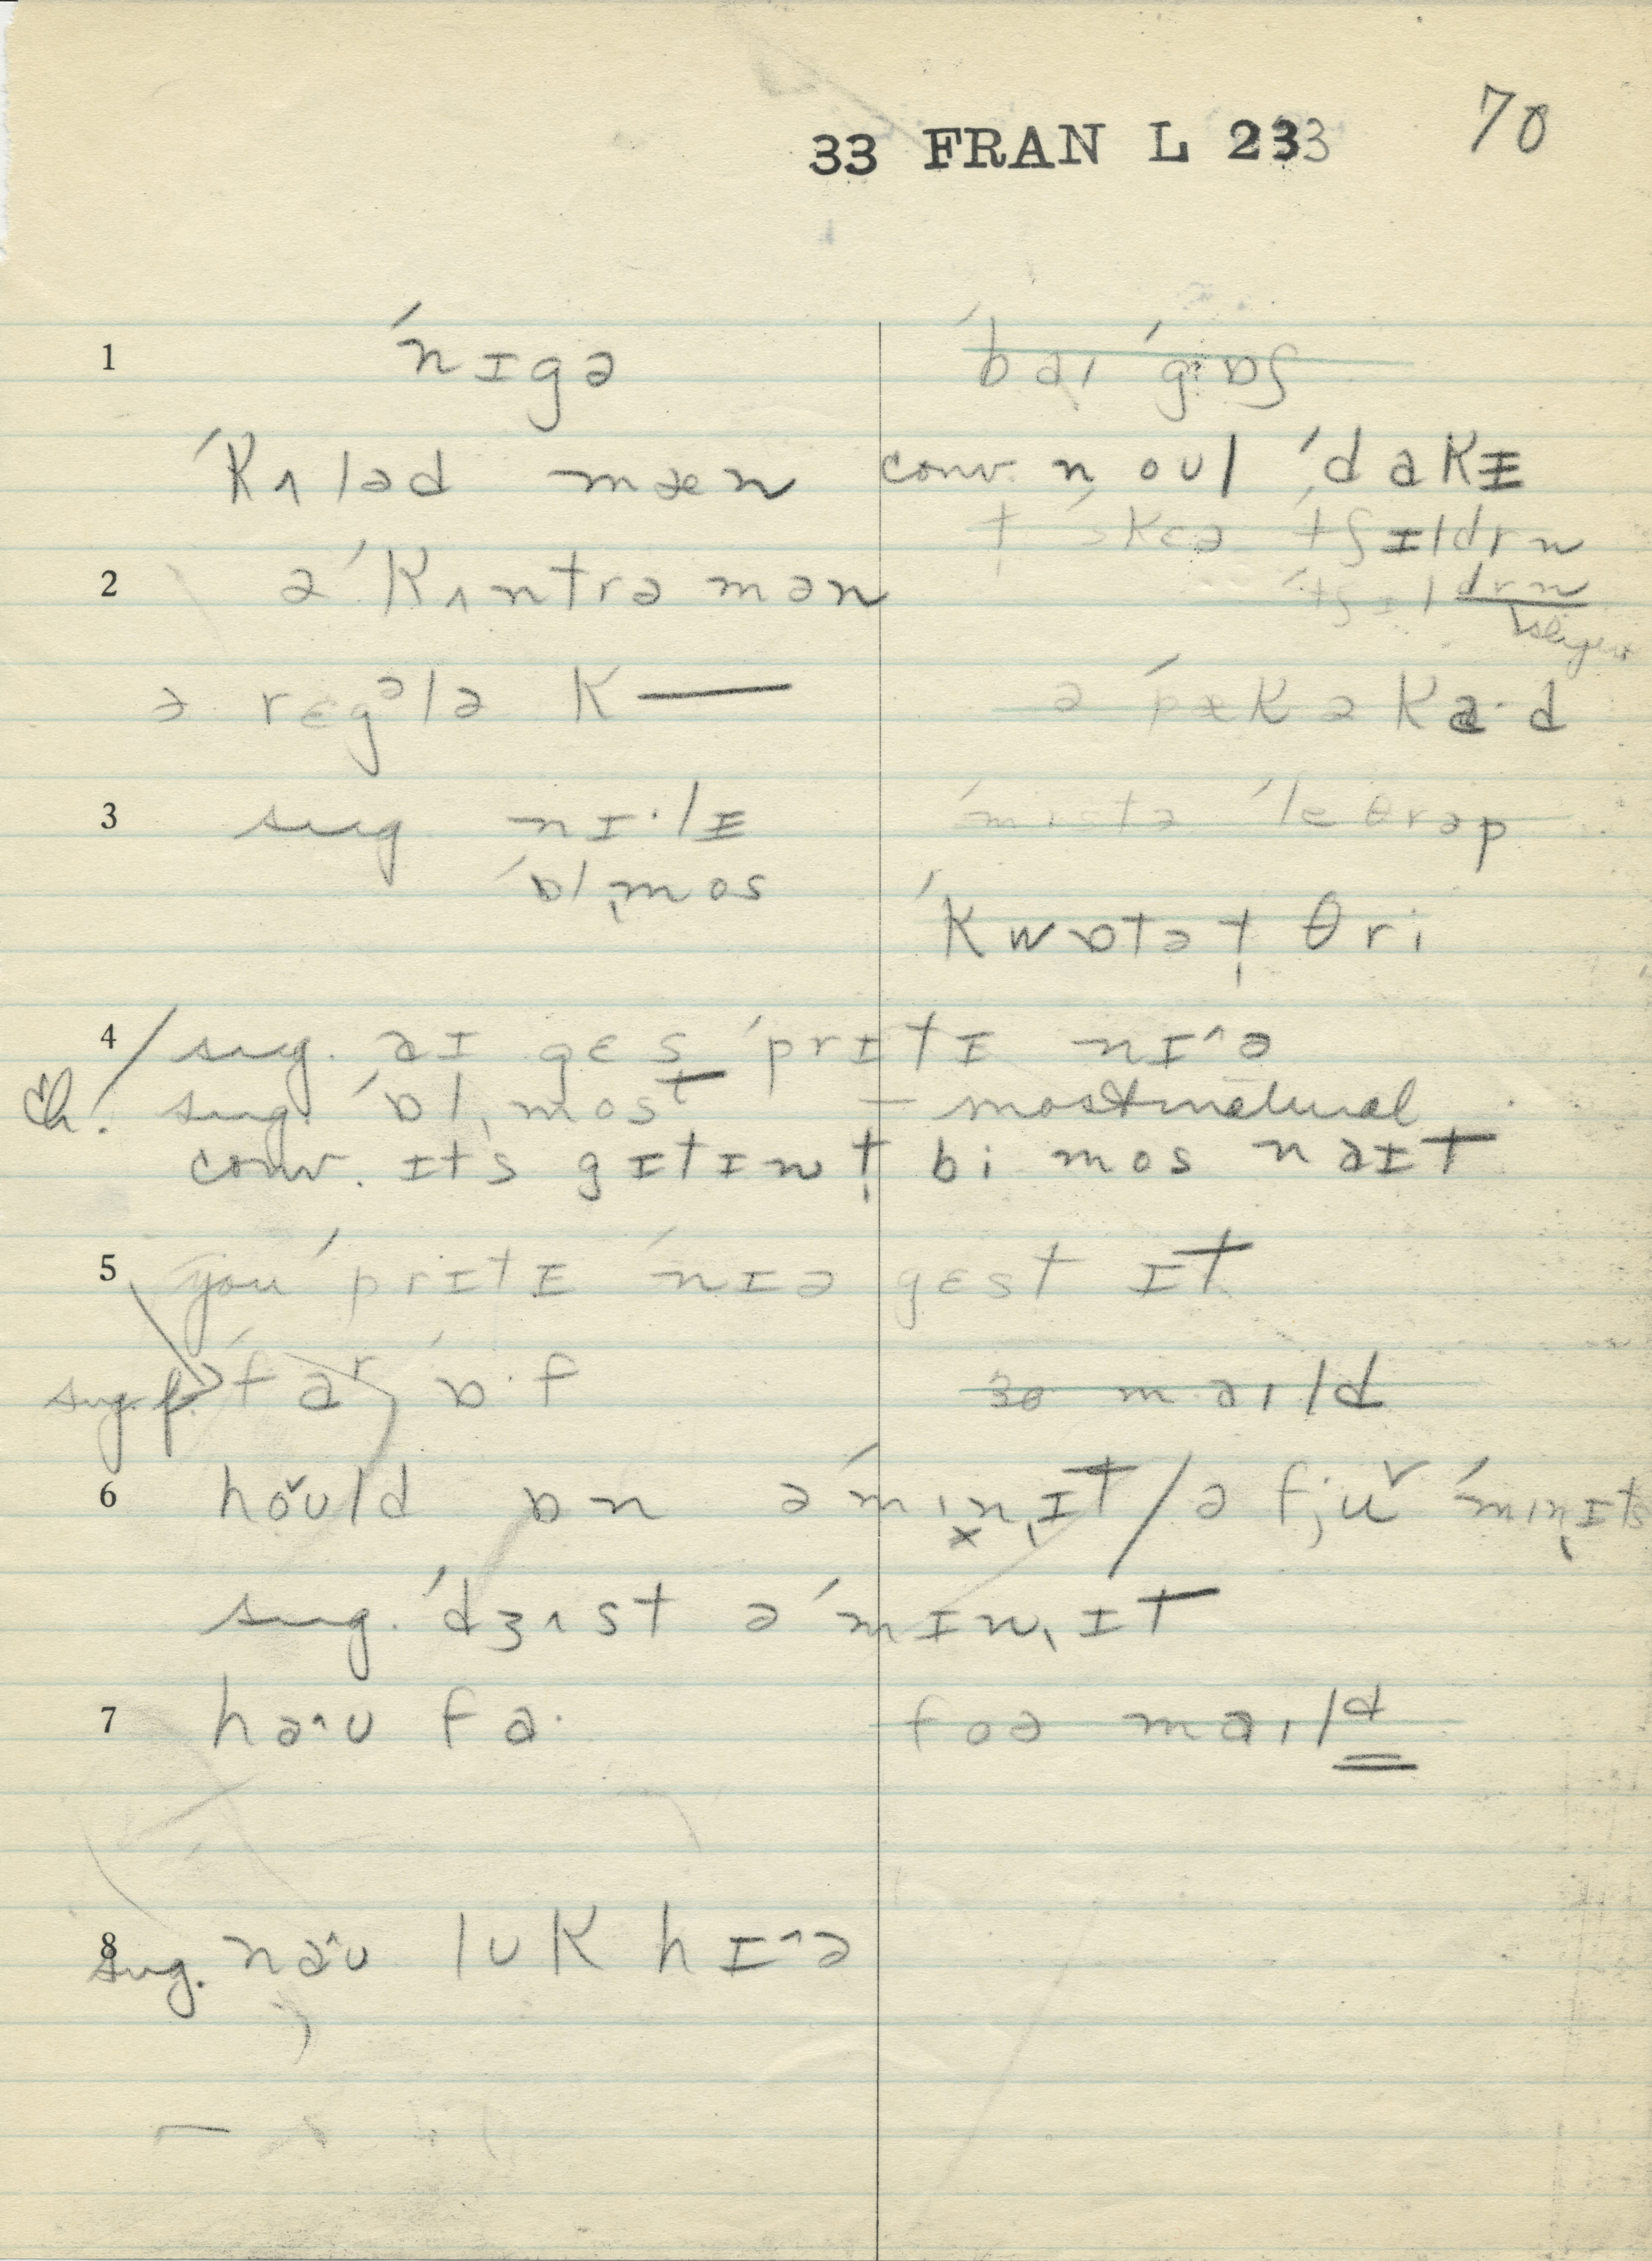 33 FRAN L 233 70
1 ˈnɪgə ˈbaɪ ˈgɒʃ
ˈkʌləd mæn conv. n oul ˈdakɪ
t ˈskɛə ˈtʃɪldrn
2 ə ˈkʌntrəmən ˈtʃɪldrn
ə rɛgᵊlə k— ə ˈpækəka·d
3 sug nɪ·lɪ ˈmɪstə ˈleθrəp
ˈɒlˌmos
ˈkwɒtət̩ θri
4 / sug. aɪ gɛs ˈprɪtɪ nɪ^ə
Ch! sug. ˈɒlˌmost – most natural
conv. ɪts gɪtɪn t̩ bi mos naɪt
5 you ˈprɪtɪ ˈnɪə gɛst ɪt
sug. f. ˈfaʳ ˈɒ·f 30 maɪld
6 hŏuld ɒn ə ˈmɪnˌɪt / ə fjuˇ ˈmɪnˌɪts
sug. ˈdʒʌst ə ˈmɪnˌɪt
7 ha^u fa· foə maɪld
8 sug. na^u luk hɪ^ə